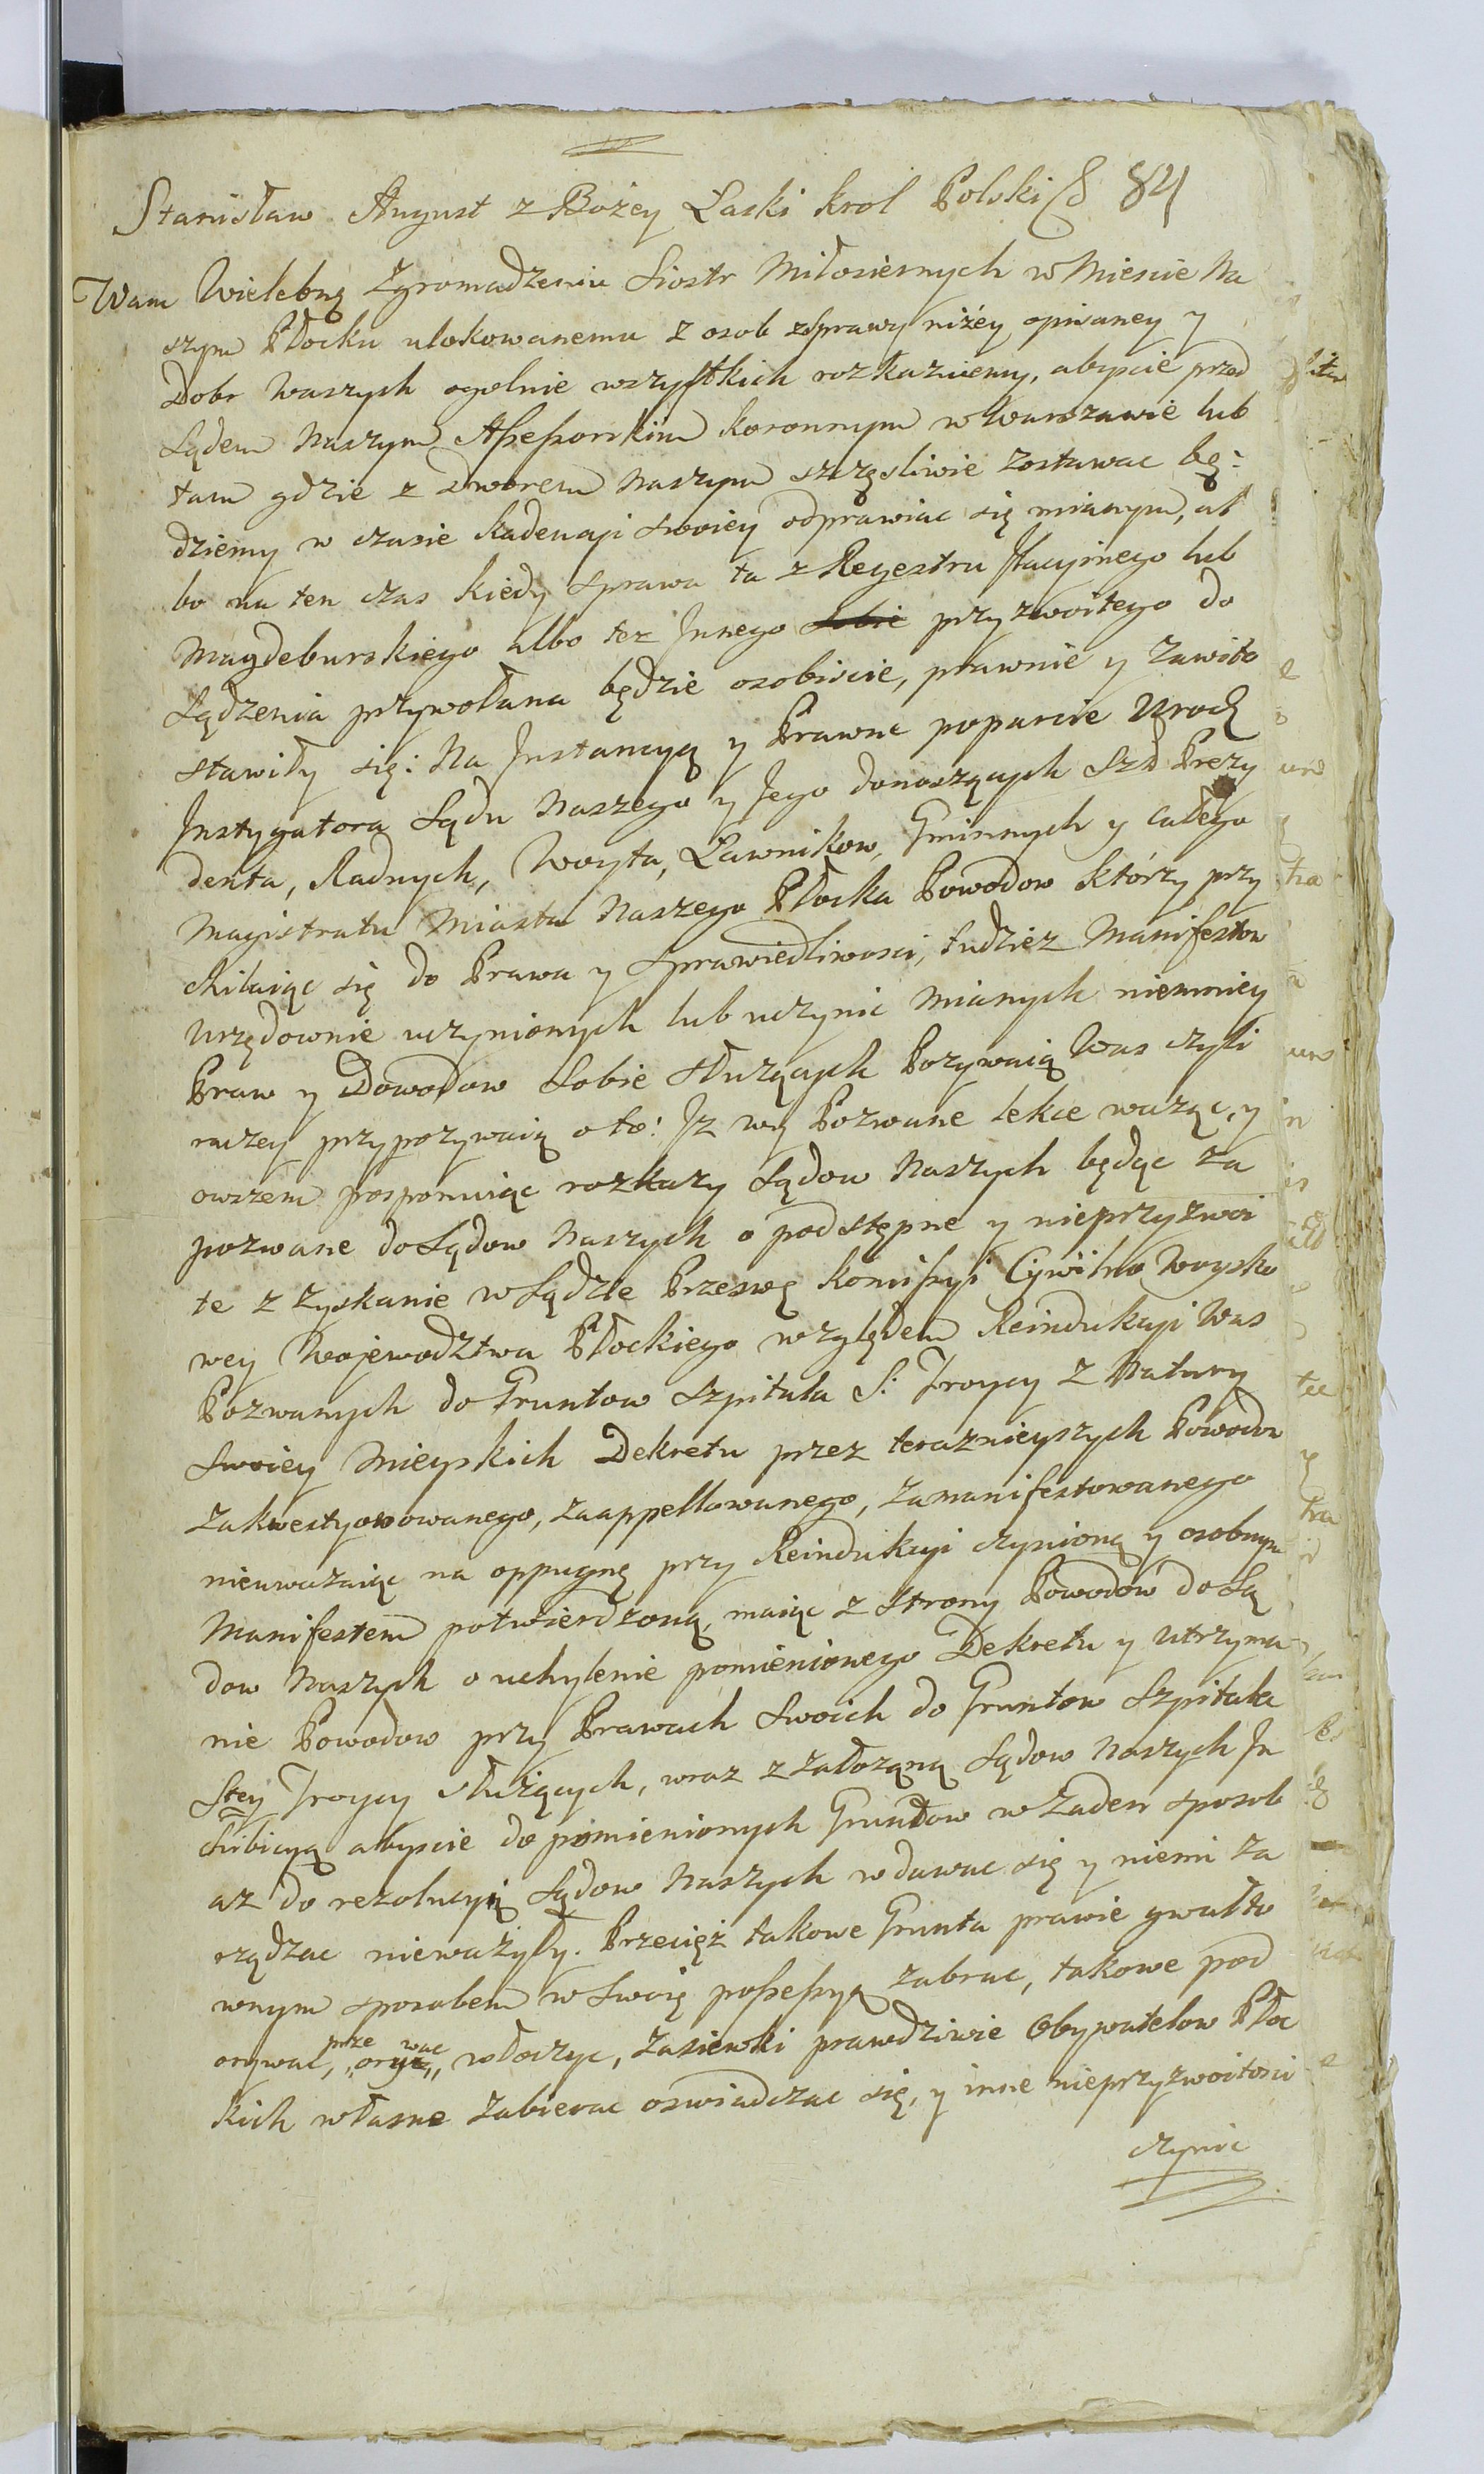 84
Stanisław August z Bożey Łaski Krol Polski &
Wam Wielebnę Zgromadzeniu Siostr Miłosiernych w Miescie Na
szym Płocku ulokowanemu z osob zsprawy niżey opisaney y
Dobr Waszych ogolnie wszystkich rozkazuiemy, abyscie przed
Sądem Naszym Assessorskim Koronnym w Warszawie lub
tam gdzie z Dworem Naszym szczęsliwie zostawac bę:
dziemy w czasie Kadencyi swoiey odprawiac się mianym, al
bo na ten czas kiedy sprawa ta z Regestru Stacyinego lub
Magdeburskiego albo tez Innego przyzwoitego do
Sądzenia przywołana będzie osobiscie, prawnie y zawito
stawiły się: Na Instancyą y Prawne poparcie Urod
Instygatora Sądu Naszego y Jego donoszących Szł Prezy
denta, Radnych, Woyta, Ławnikow, Gminnych y całego
Magistratu Miasta Naszego Płocka Powodow którzy przy
chilaiąc się do Prawa y Sprawiedliwosci, tudziez Manifestow
Urzędownie uczynionych lub uczynic mianych niemniey
Praw y Dowodow Sobie służących Pozywaią Was czyli
raczey przypozywaią o to: Iz wy Pozwane lekce waząc, y
owszem posponuiąc rozkazy Sądow Naszych będąc za
pozwane do Sądow Naszych o podstępne y nieprzyzwoi
te zzyskanie w Sądzie Przeswę Komissyi Cywilno Woysko
wey Wojewodztwa Płockiego względem Reindukcyi Was
Pozwanych do Gruntow Szpitala S: Troycy z Natury
Swoiey Mieyskich Dekretu przez terazneyszych Powodow
zakwestyonowanego, zaappellowanego, zamanifestowanego
nieuważaiąc na oppugnę przy Reindukcyi czynioną y osobnym
Manifestem potwierdzoną, maiąc z Strony Powodów do Są
dow Naszych o uchylenie pomienionego Dekretu y utrzyma
nie Powodow przy Prawach Swoich do Gruntow Szpitala
Stey Troycy służących, wraz z załozoną Sądow Naszych In
hibicyą abyscie do pomienionych Gruntow w żaden sposob
az do rezolucyi Sądow Naszych wdawac się y niemi za
rządzac nieważyły. Przecięż takowe Grunta prawie gwałto
wnym sposobem w Swoię possessyą zabrac, takowe pod
orywac, prze orywac, włoczyc, zasiewki prawdziwie Obywatelow Płoc
kich własne zabierac oswiadczac się, y inne nieprzyzwoitosci
czynic